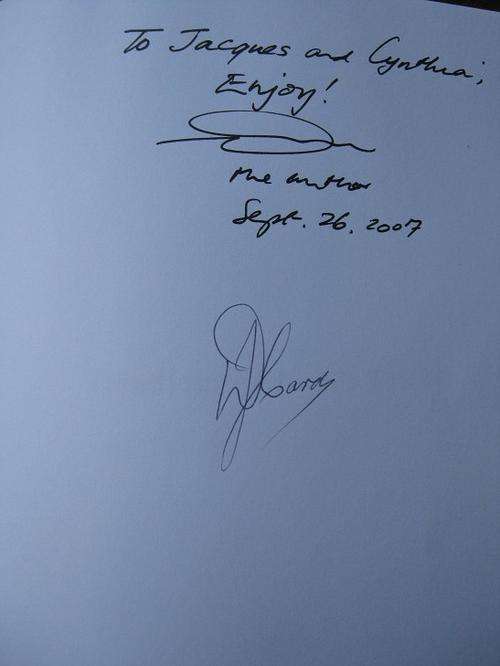 To Jacques and Cynthia,
Enjoy!
the author
Sept. 26, 2007